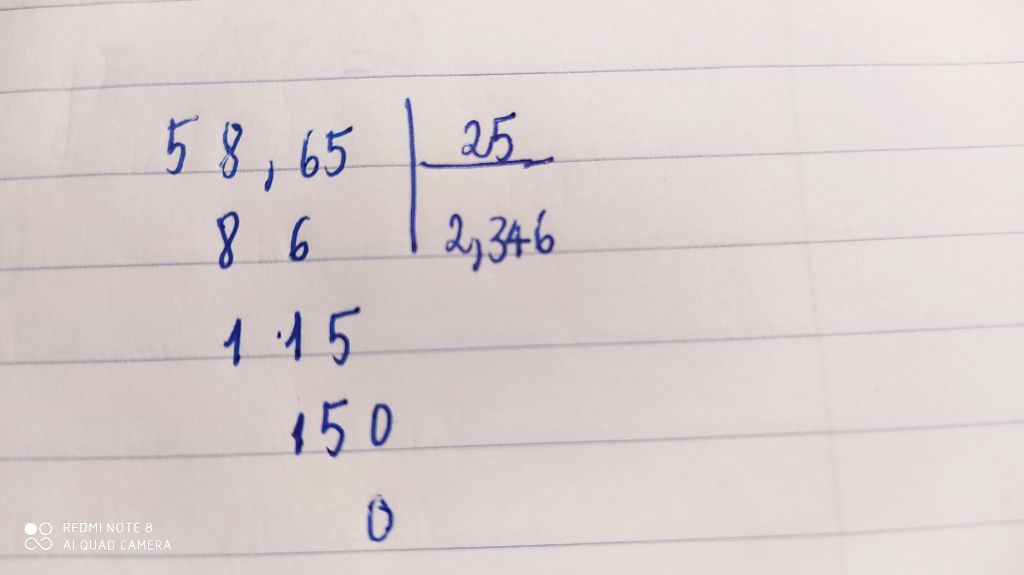 58,65 | 25
86 | 2,346
115
150
0
REDMI NOTE 8
AI QUAD CAMERA